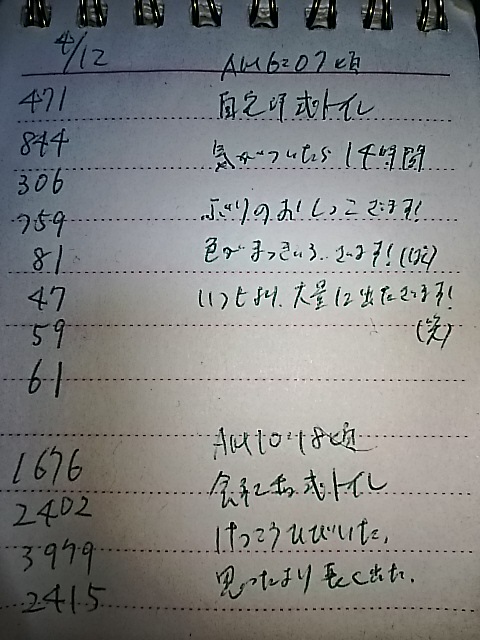 4/12 AM6:07頃
471 自宅洋式トイレ
844 気がついたら14時間
306
759 ぶりのおしっこでます!
81 色がまっきいろ、でます!(笑)
47 いつもより、大量に出たでます!
59 (笑)
61
AM10:18頃
1676 会社和式トイレ
2402
3979 けっこうひびいた。
2415 思ったより長く出た。